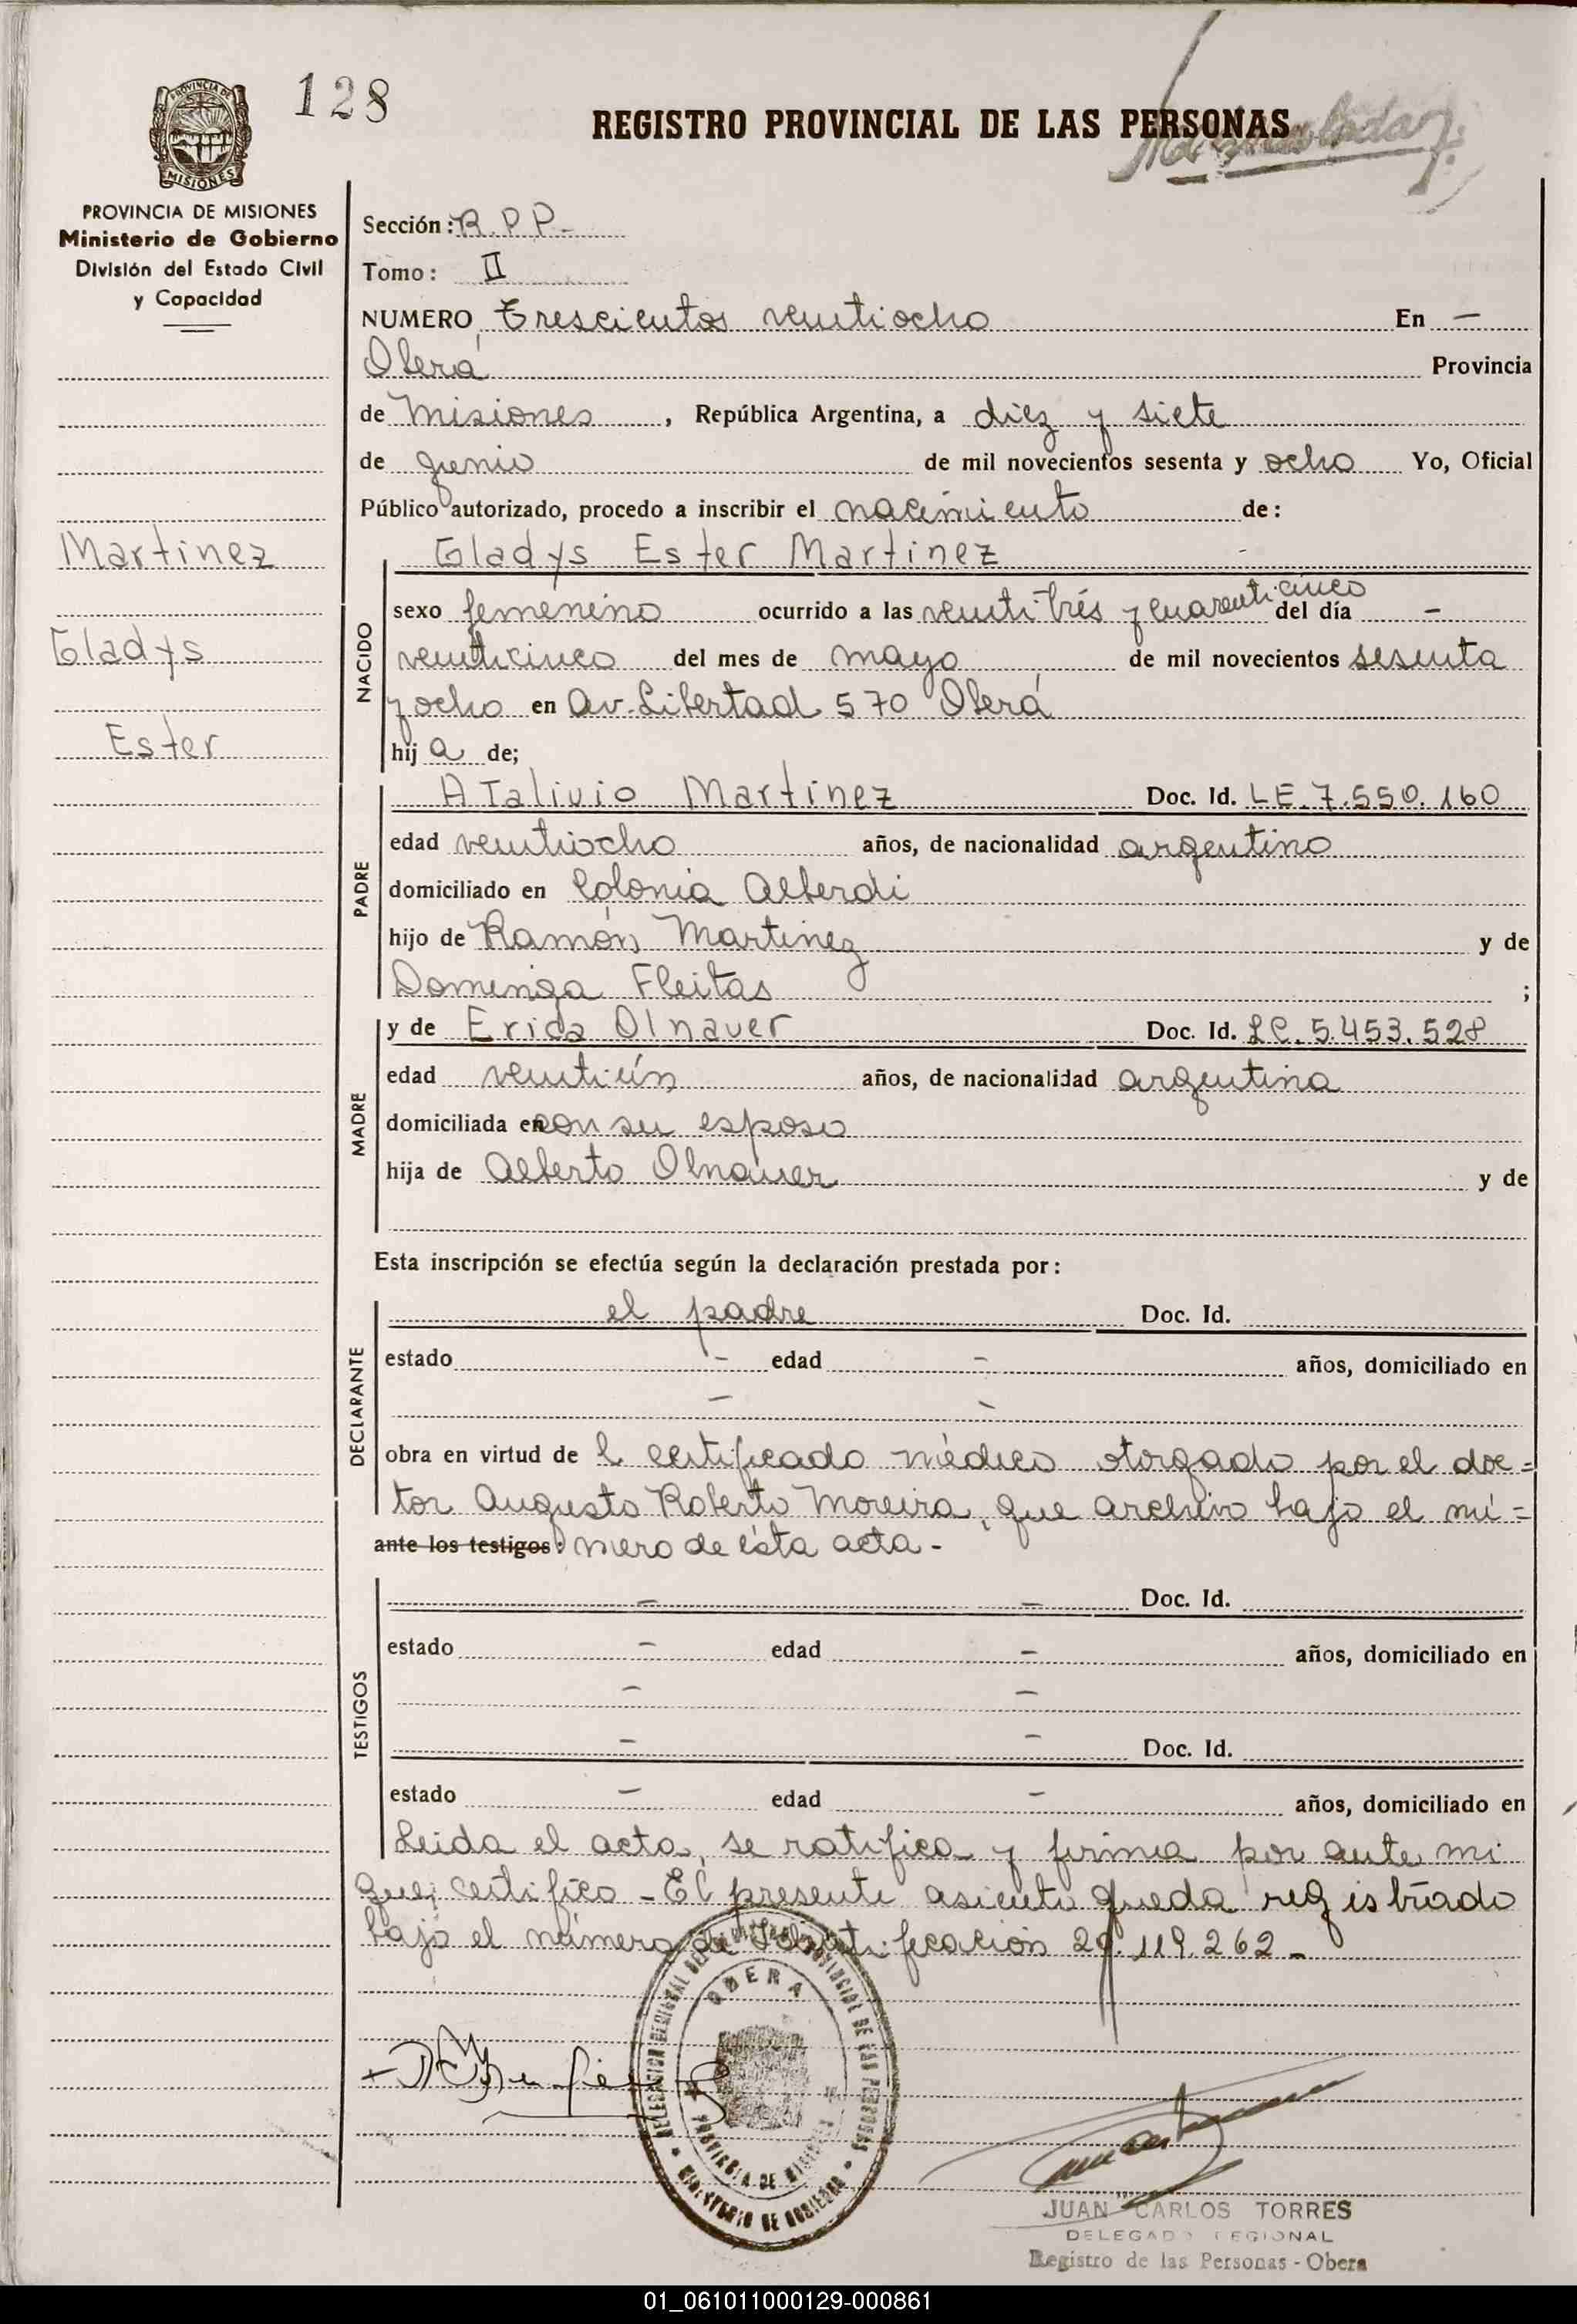 128
REGISTRO PROVINCIAL DE LAS PERSONAS
PROVINCIA DE
MISIONES
PROVINCIA DE MISIONES
Ministerio de Gobierno
División del Estado Civil
y Capacidad
Martinez
Gladys
Ester
Sección: R.P.P.-
Tomo: II
NUMERO Trescientos veintiocho En -
Oberá Provincia
de Misiones, República Argentina, a diez y siete
de junio de mil novecientos sesenta y ocho Yo, Oficial
Público autorizado, procedo a inscribir el nacimiento de:
Gladys Ester Martinez
NACIDO
sexo femenino ocurrido a las veintitrés y cuarenticinco del día -
veinticinco del mes de mayo de mil novecientos sesenta
y ocho en Av. Libertad 570 Oberá
hija de;
PADRE
Atalivio Martinez Doc. Id. LE. 7.550.160
edad veintiocho años, de nacionalidad argentino
domiciliado en Colonia Alberdi
hijo de Ramón Martinez y de
Dominga Fleitas ;
MADRE
y de Erica Olnauer Doc. Id. LC. 5.453.528
edad veintiún años, de nacionalidad argentina
domiciliada en con su esposo
hija de Alberto Olnauer y de
Esta inscripción se efectúa según la declaración prestada por:
DECLARANTE
el padre Doc. Id.
estado - edad - años, domiciliado en
- -
obra en virtud de l certificado médico otorgado por el doc=
tor Augusto Roberto Moreira, que archivo bajo el nú=
ante los testigos: mero de ésta acta-
TESTIGOS
- - Doc. Id.
estado - edad - años, domiciliado en
- -
- - Doc. Id.
estado - edad - años, domiciliado en
Leida el acta, se ratifica y firma por ante mi
que certifico - El presente asiento queda registrado
bajo el número de Identificación 20.119.262-
OBERA
PROVINCIA DE MISIONES
MINISTERIO DE GOBIERNO
JUAN CARLOS TORRES
DELEGADO REGIONAL
Registro de las Personas - Obera
01_061011000129-000861